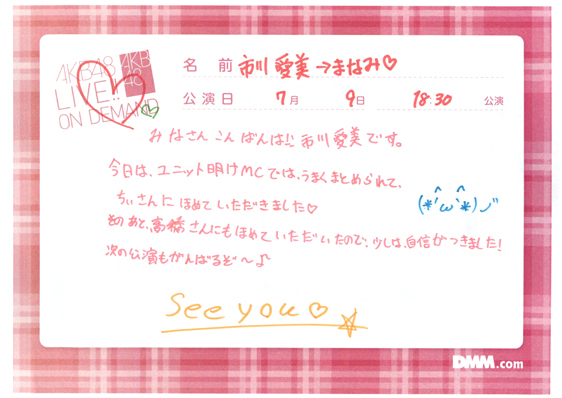 AKB48
LIVE!!
ON DEMAND
AKB
48
名 前 市川 愛美→まなみ♡
公演日 7月 9日 18:30 公演
みなさん こんばんは!! 市川愛美です。
今日は、ユニット明けMCでは、うまくまとめられて、
ちぃさんに ほめて いただきました♡
そのあと、高橋さんにも ほめて いただいたので、少しは、自信がつきました!
次の公演もがんばるぞ〜♪
(*^'ω'^*)ノ
See you♡
DMM.com